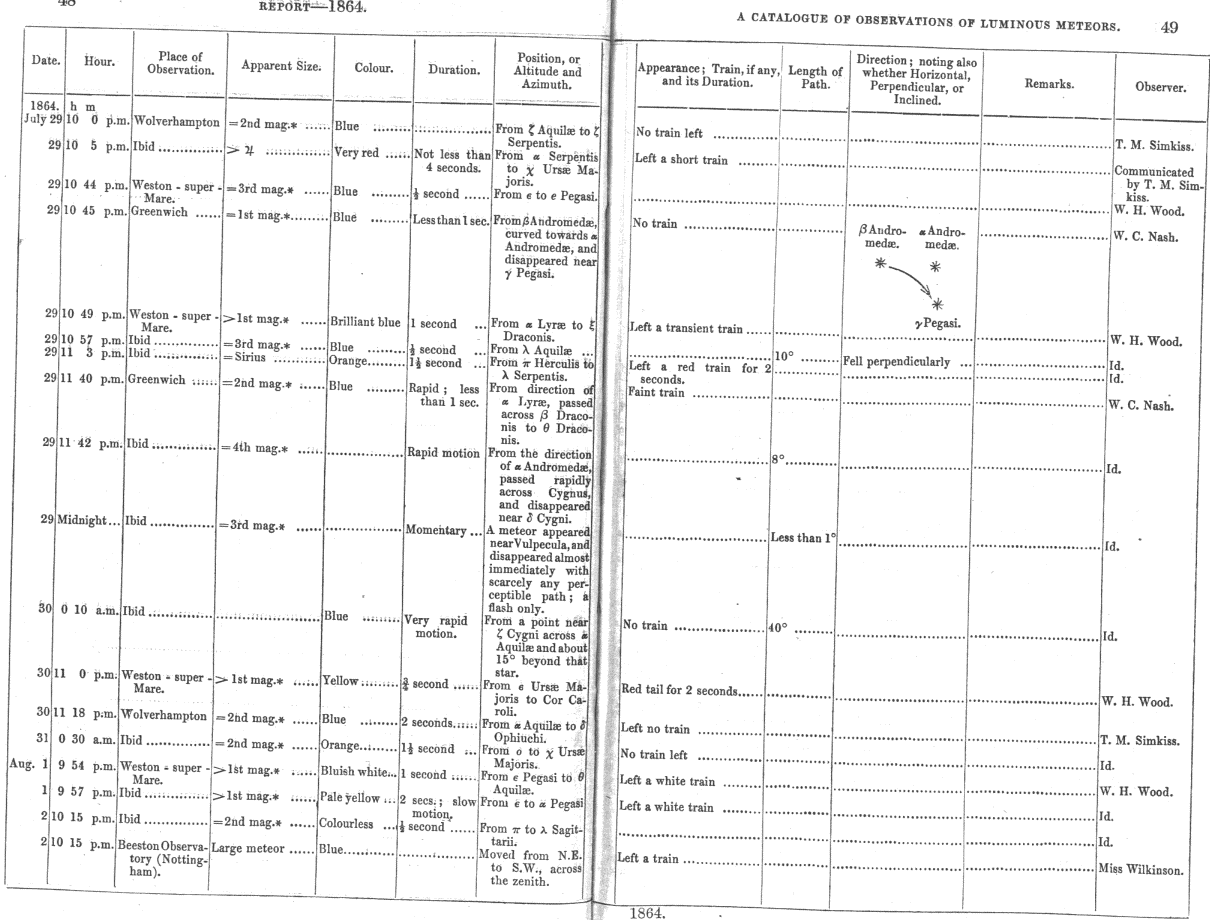 48 REPORT—1864.
Date. Hour. Place of Observation. Apparent Size. Colour. Duration. Position, or Altitude and Azimuth.
1864. h m
July 29 10 0 p.m. Wolverhampton =2nd mag.* ...... Blue ......... .............. From ζ Aquilæ to ζ
Serpentis.
29 10 5 p.m. Ibid ............. > ♃ .............. Very red ...... Not less than From α Serpentis
4 seconds. to χ Ursæ Ma-
joris.
29 10 44 p.m. Weston - super - =3rd mag.* ...... Blue ......... ½ second ...... From e to e Pegasi.
Mare.
29 10 45 p.m. Greenwich ...... =1st mag.*....... Blue ......... Less than 1 sec. From β Andromedæ,
curved towards α
Andromedæ, and
disappeared near
γ Pegasi.
29 10 49 p.m. Weston - super - >1st mag.* ...... Brilliant blue 1 second ... From α Lyræ to ξ
Mare. Draconis.
29 10 57 p.m. Ibid ............. =3rd mag.* ...... Blue ......... ½ second ...... From λ Aquilæ ...
29 11 3 p.m. Ibid ............. =Sirius .......... Orange......... 1½ second ... From π Herculis to
λ Serpentis.
29 11 40 p.m. Greenwich ...... =2nd mag.* ...... Blue ......... Rapid ; less From direction of
than 1 sec. α Lyræ, passed
across β Draco-
nis to θ Draco-
nis.
29 11 42 p.m. Ibid ............. =4th mag.* ...... .............. Rapid motion From the direction
of α Andromedæ,
passed rapidly
across Cygnus,
and disappeared
near δ Cygni.
29 Midnight... Ibid ............. =3rd mag.* ...... .............. Momentary ... A meteor appeared
near Vulpecula, and
disappeared almost
immediately with
scarcely any per-
ceptible path ; a
flash only.
30 0 10 a.m. Ibid ............. .................. Blue ......... Very rapid From a point near
motion. ζ Cygni across α
Aquilæ and about
15° beyond that
star.
30 11 0 p.m. Weston - super - > 1st mag.* ...... Yellow......... ¾ second ...... From e Ursæ Ma-
Mare. joris to Cor Ca-
roli.
30 11 18 p.m. Wolverhampton =2nd mag.* ...... Blue ......... 2 seconds...... From α Aquilæ to δ
Ophiuchi.
31 0 30 a.m. Ibid ............. =2nd mag.* ...... Orange......... 1½ second ... From o to χ Ursæ
Majoris.
Aug. 1 9 54 p.m. Weston - super - >1st mag.* ...... Bluish white... 1 second ...... From e Pegasi to θ
Mare. Aquilæ.
1 9 57 p.m. Ibid ............. >1st mag.* ...... Pale yellow ... 2 secs. ; slow From e to α Pegasi
motion.
2 10 15 p.m. Ibid ............. =2nd mag.* ...... Colourless ... ½ second ...... From π to λ Sagit-
tarii.
2 10 15 p.m. Beeston Observa- Large meteor ...... Blue............ .............. Moved from N.E.
tory (Notting- to S.W., across
ham). the zenith.
A CATALOGUE OF OBSERVATIONS OF LUMINOUS METEORS. 49
Appearance ; Train, if any, and its Duration. Length of Path. Direction ; noting also whether Horizontal, Perpendicular, or Inclined. Remarks. Observer.
No train left .............. T. M. Simkiss.
Left a short train .............. Communicated
by T. M. Sim-
kiss.
.............. W. H. Wood.
No train .............. β Andro- α Andro- .............. W. C. Nash.
medæ. medæ.
γ Pegasi.
Left a transient train .............. W. H. Wood.
.............. 10° ......... Fell perpendicularly ... .............. Id.
Left a red train for 2 .............. Id.
seconds.
Faint train .............. W. C. Nash.
.............. 8°............ .............. Id.
.............. Less than 1° .............. Id.
No train .............. 40° ......... .............. Id.
Red tail for 2 seconds...... .............. W. H. Wood.
Left no train .............. T. M. Simkiss.
No train left .............. Id.
Left a white train .............. W. H. Wood.
Left a white train .............. Id.
.............. Id.
Left a train .............. Miss Wilkinson.
1864.